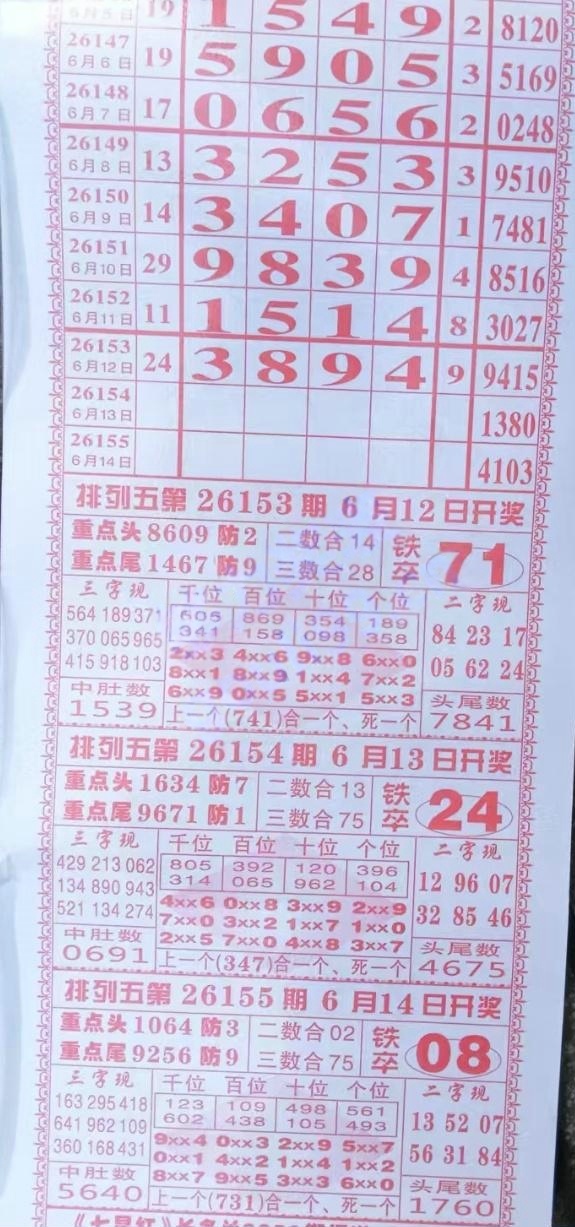 6月5日 19 1 5 4 9 2 8120
26147
6月6日 19 5 9 0 5 3 5169
26148
6月7日 17 0 6 5 6 2 0248
26149
6月8日 13 3 2 5 3 3 9510
26150
6月9日 14 3 4 0 7 1 7481
26151
6月10日 29 9 8 3 9 4 8516
26152
6月11日 11 1 5 1 4 8 3027
26153
6月12日 24 3 8 9 4 9 9415
26154
6月13日 1380
26155
6月14日 4103
排列五第 26153 期 6 月12日开奖
重点头8609 防2 二数合14 铁卒 71
重点尾1467 防9 三数合28
三字现 千位 百位 十位 个位 二字现
564 189 371 605 869 354 189 84 23 17
370 065 965 341 158 098 358
415 918 103 2xx3 4xx6 9xx8 6xx0 05 62 24
8xx1 8xx9 1xx4 7xx2
中肚数 6xx9 0xx5 5xx1 5xx3 头尾数
1539 上一个(741)合一个、死一个 7841
排列五第 26154 期 6 月13日开奖
重点头1634 防7 二数合13 铁卒 24
重点尾9671 防1 三数合75
三字现 千位 百位 十位 个位 二字现
429 213 062 805 392 120 396 12 96 07
134 890 943 314 065 962 104
521 134 274 4xx6 0xx8 3xx9 2xx9 32 85 46
7xx0 3xx2 1xx7 1xx0
中肚数 2xx5 7xx0 4xx8 3xx7 头尾数
0691 上一个(347)合一个、死一个 4675
排列五第 26155 期 6 月14日开奖
重点头1064 防3 二数合02 铁卒 08
重点尾9256 防9 三数合75
三字现 千位 百位 十位 个位 二字现
163 295 418 123 109 498 561 13 52 07
641 962 109 602 438 105 493
360 168 431 9xx4 0xx3 2xx9 5xx7 56 31 84
0xx1 4xx2 1xx4 1xx2
中肚数 8xx7 9xx5 3xx3 6xx0 头尾数
5640 上一个(731)合一个、死一个 1760